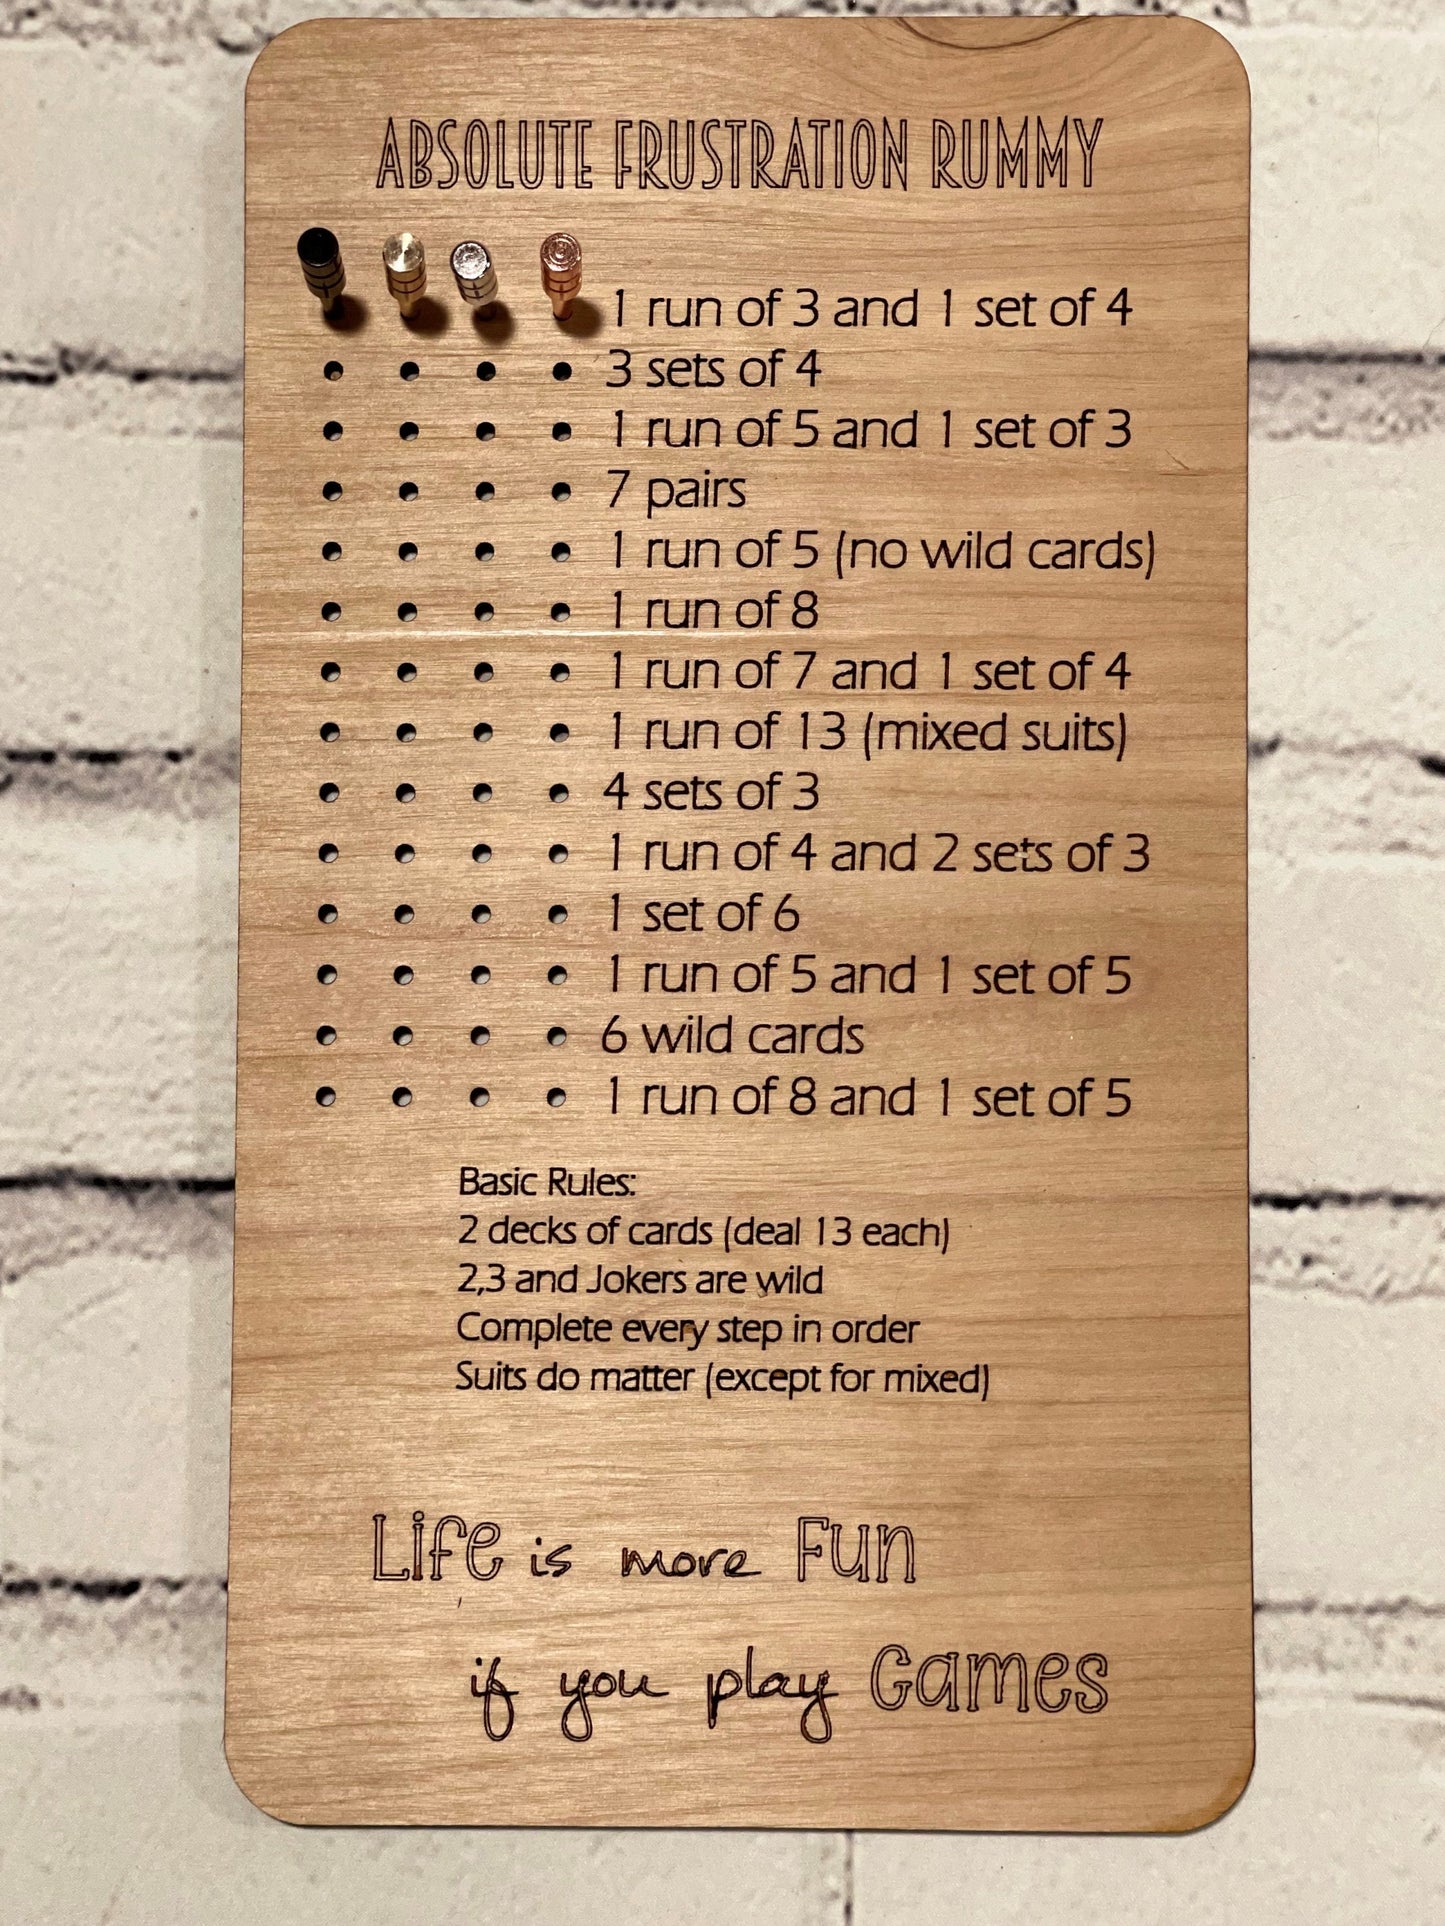 ABSOLUTE FRUSTRATION RUMMY
1 run of 3 and 1 set of 4
3 sets of 4
1 run of 5 and 1 set of 3
7 pairs
1 run of 5 (no wild cards)
1 run of 8
1 run of 7 and 1 set of 4
1 run of 13 (mixed suits)
4 sets of 3
1 run of 4 and 2 sets of 3
1 set of 6
1 run of 5 and 1 set of 5
6 wild cards
1 run of 8 and 1 set of 5
Basic Rules:
2 decks of cards (deal 13 each)
2,3 and Jokers are wild
Complete every step in order
Suits do matter (except for mixed)
Life is more Fun
if you play Games